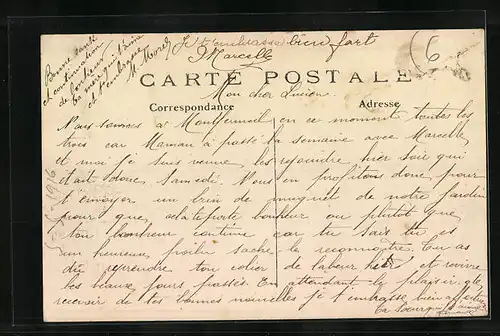 Bonne santé
et continuation
de bonheur
t'embrasse
M. Morel
Je t'embrasse bien fort
Marcelle
6
CARTE POSTALE
Mon cher Lucien.
Correspondance
Adresse
Nous sommes à Montfermeil en ce moment toutes les
trois car Maman a passé la semaine avec Marcelle
et moi je suis venue les rejoindre hier soir qui
était donc Samedi. Nous en profitons donc pour
t'envoyer un brin de muguet de notre jardin
pour que cela te porte bonheur ou plutôt que
ton bonheur continue car tu sais tu es
un heureux poilu sache le reconnaître. Tu as
dû reprendre ton collier de labeur hier et revivre
les beaux jours passés. En attendant le plaisir de
recevoir de tes bonnes nouvelles je t'embrasse bien affect
Ta soeur
1916